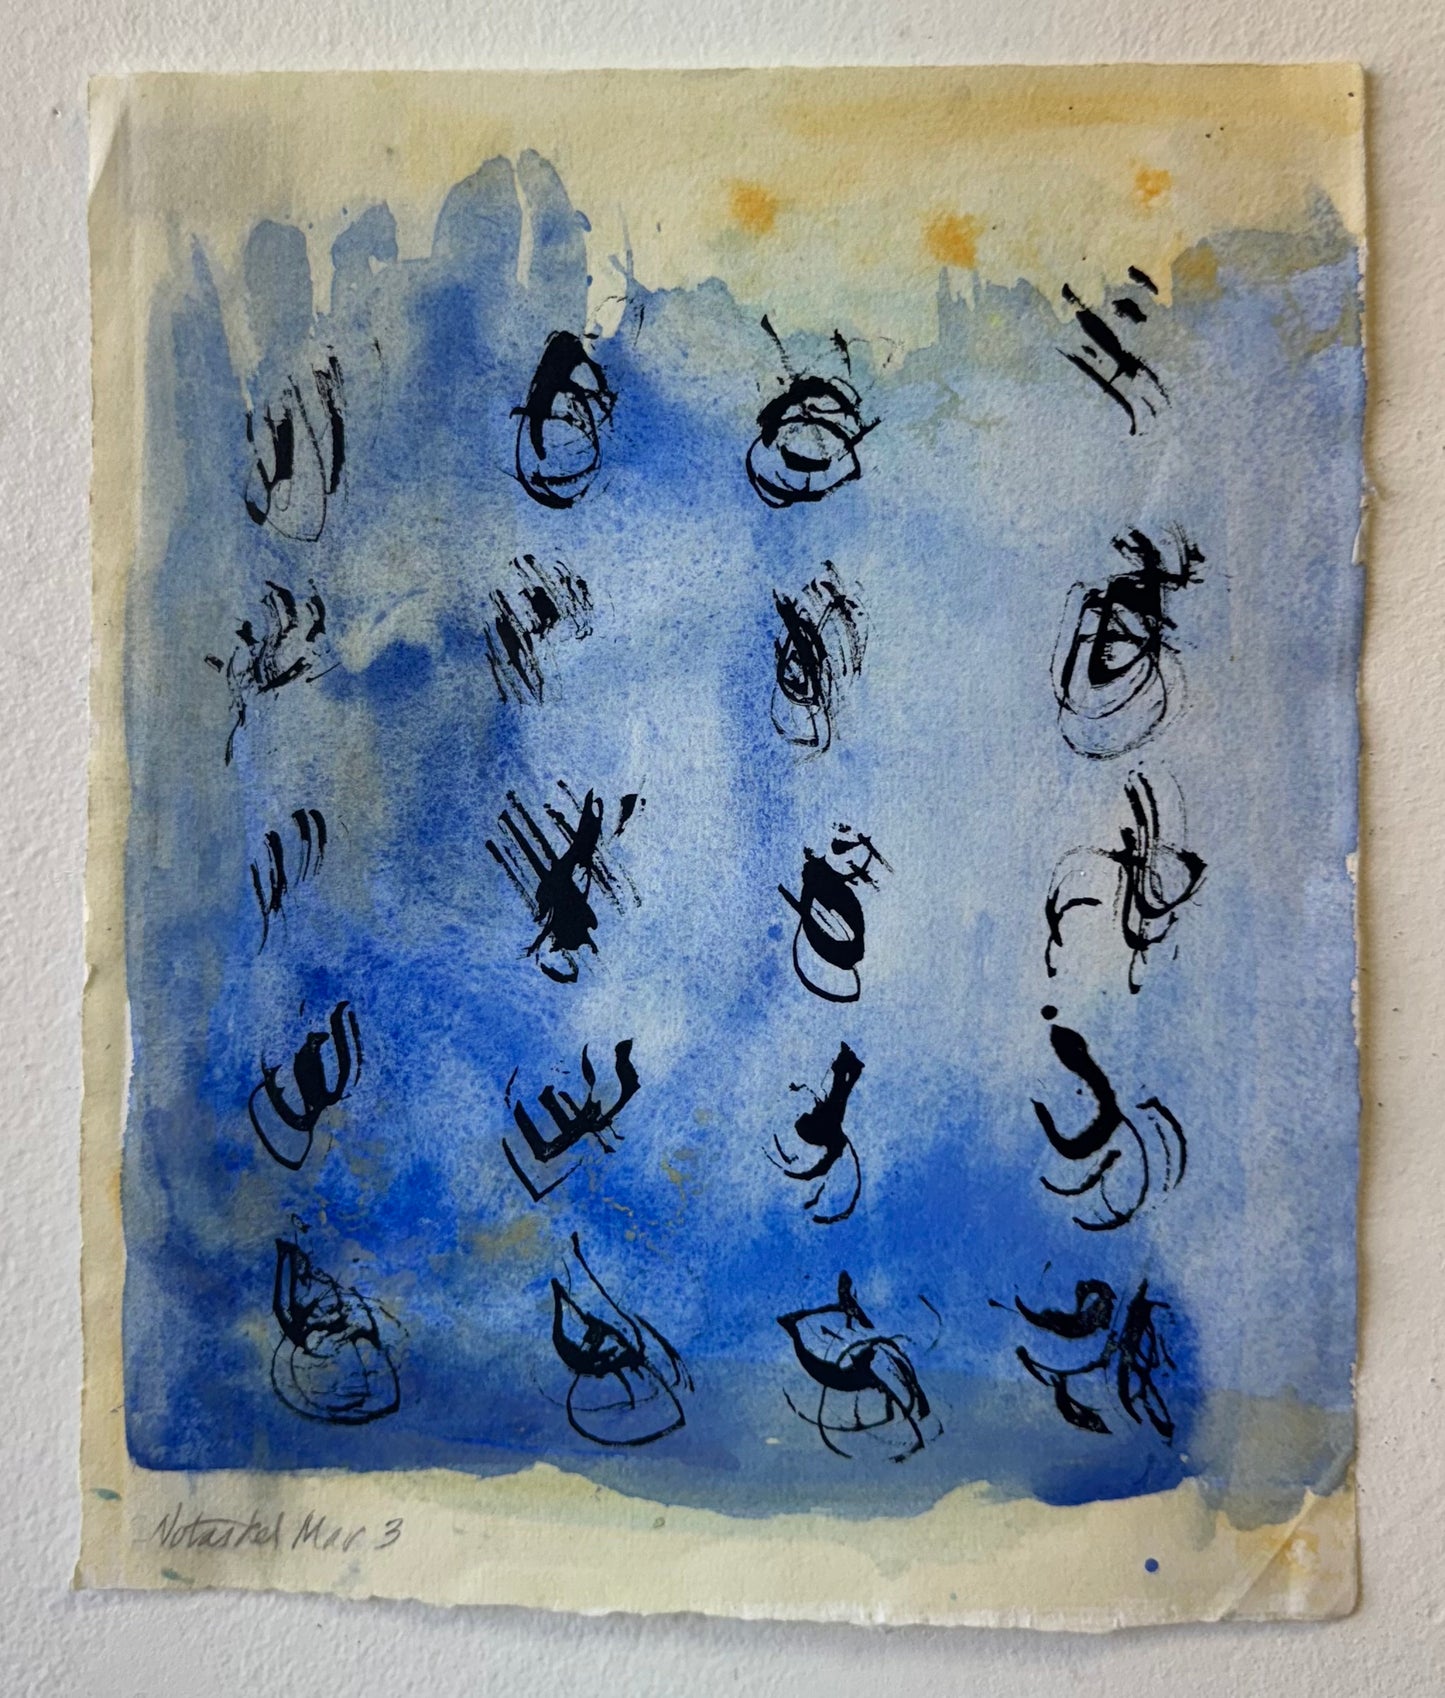 Notaskel Mar 3